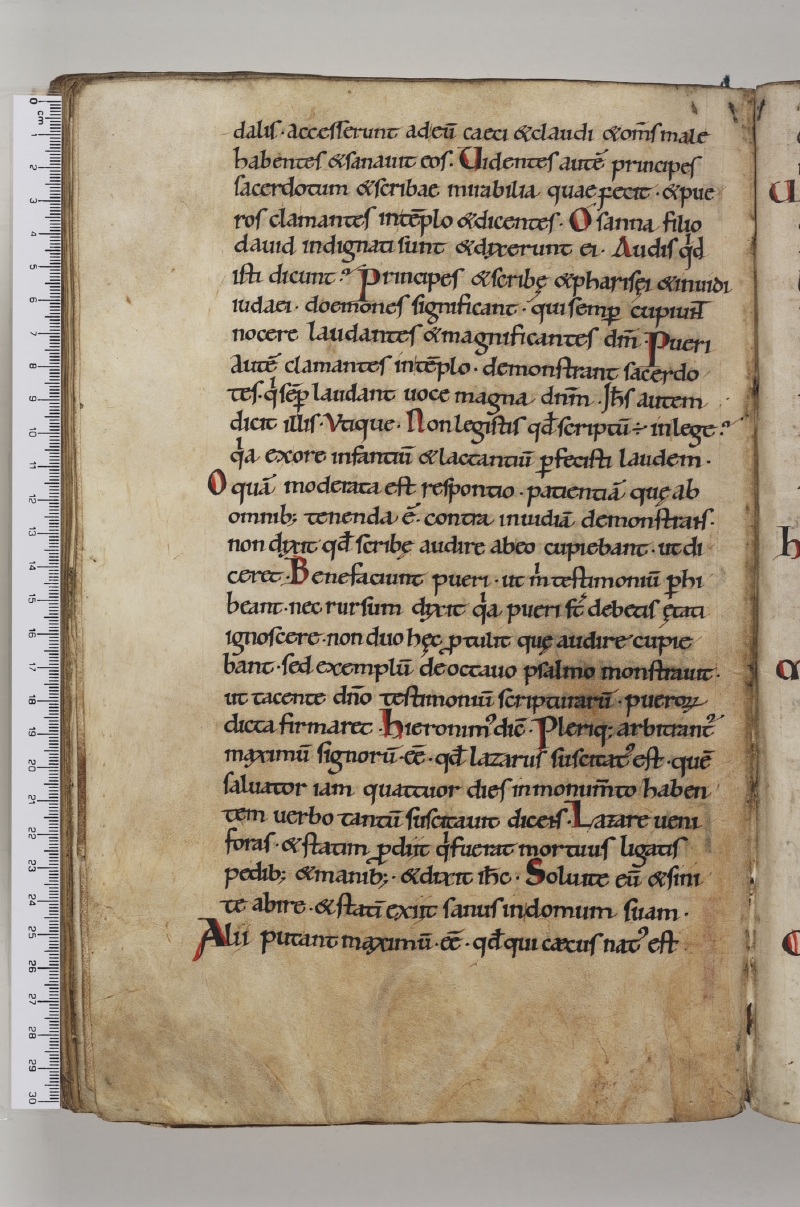 dalis · accesserunt ad eū caeci &claudi &om̄s male
habentes &sanauit eos. Uidentes autē principes
sacerdotum &scribae mirabilia quae fecit · &pue
ros clamantes intēplo &dicentes · O sanna filio
dauid indignati sunt &dixerunt ei · Audis qd̄
isti dicunt? Principes &scribę &pharisęi &inuidi
iudaei · doemones significant · qui semꝑ cupiunt
nocere laudantes &magnificantes dm̄ · Pueri
autē clamantes intēplo · demonstrant sacerdo
tes · q̇ sēꝑ laudant uoce magna dnm̄ · Jhs̄ autem
dicit illis · Vtique · Non legistis qd̄ scriptū ÷ inlege?
q̇a exore infantiū &lactantiū ꝑfecisti laudem ·
O quā moderata est responsio · patientiā quę ab
omnib; tenenda ē · contra inuidiā demonstrans ·
non dixit qd̄ scribę audire abeo cupiebant · ut di
ceret · Benefaciunt pueri · ut ṁ testimoniū ꝑhi
beant · nec rursum dixit q̇a pueri st̄ debetis ętati
ignoscere · non duo hęc ꝓtulit quę audire cupie
bant · sed exemplū deoctauo psalmo monstrauit ·
ut tacente dn̄o testimoniū scripturarū · pueroꝝ
dicta firmaret · Hieronim᾽ dic̄ · Pleriq; arbitrant᾽
maximū signorū · eē · qd̄ lazarus suscitat᾽ est · quē
saluator iam quattuor dies inmonum̄to haben
tem uerbo tantū suscitauit dicens · Lazare ueni
foras · &statim ꝓdiit q̇ fuerat mortuus ligatis
pedib; &manib; · &dixit ih̄c · Soluite eū &sini
te abire · &statī exiit sanus indomum suam ·
Alii putant maximū · eē · qd̄ qui cæcus nat᾽ est